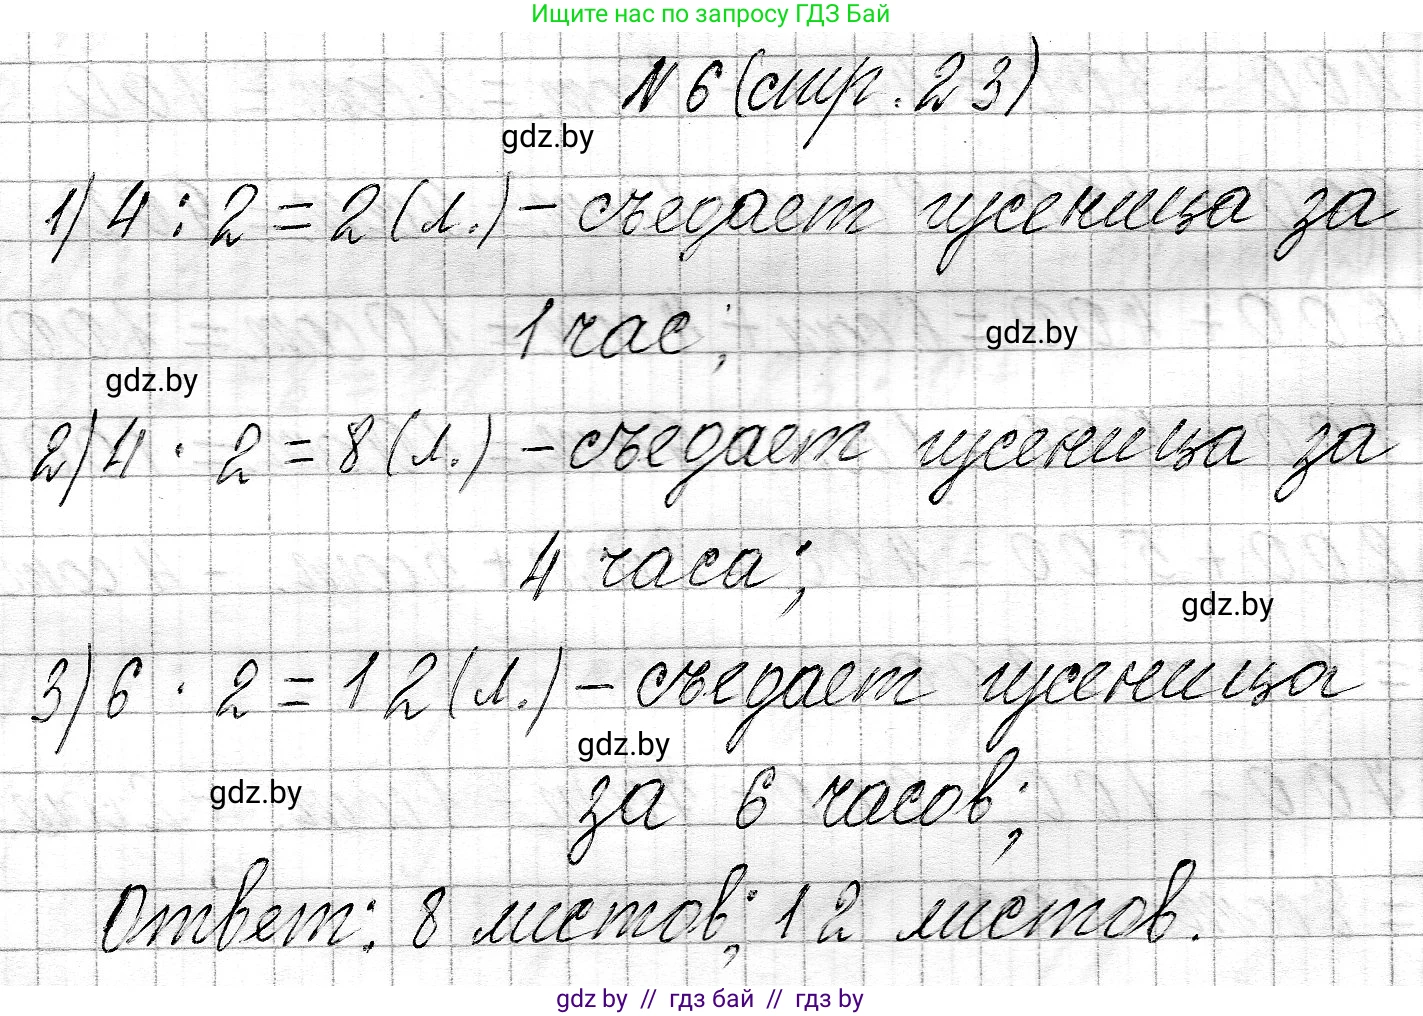 Ищите нас по запросу ГДЗ Бай
№ 6 (стр. 23)
gdz.by
1) 4 : 2 = 2 (л.) – съедает гусеница за
1 час;
gdz.by
gdz.by
2) 4 · 2 = 8 (л.) – съедает гусеница за
4 часа;
gdz.by
3) 6 · 2 = 12 (л.) – съедает гусеница
gdz.by
за 6 часов;
gdz.by
Ответ: 8 листов; 12 листов.
gdz by // гдз бай // гдз by